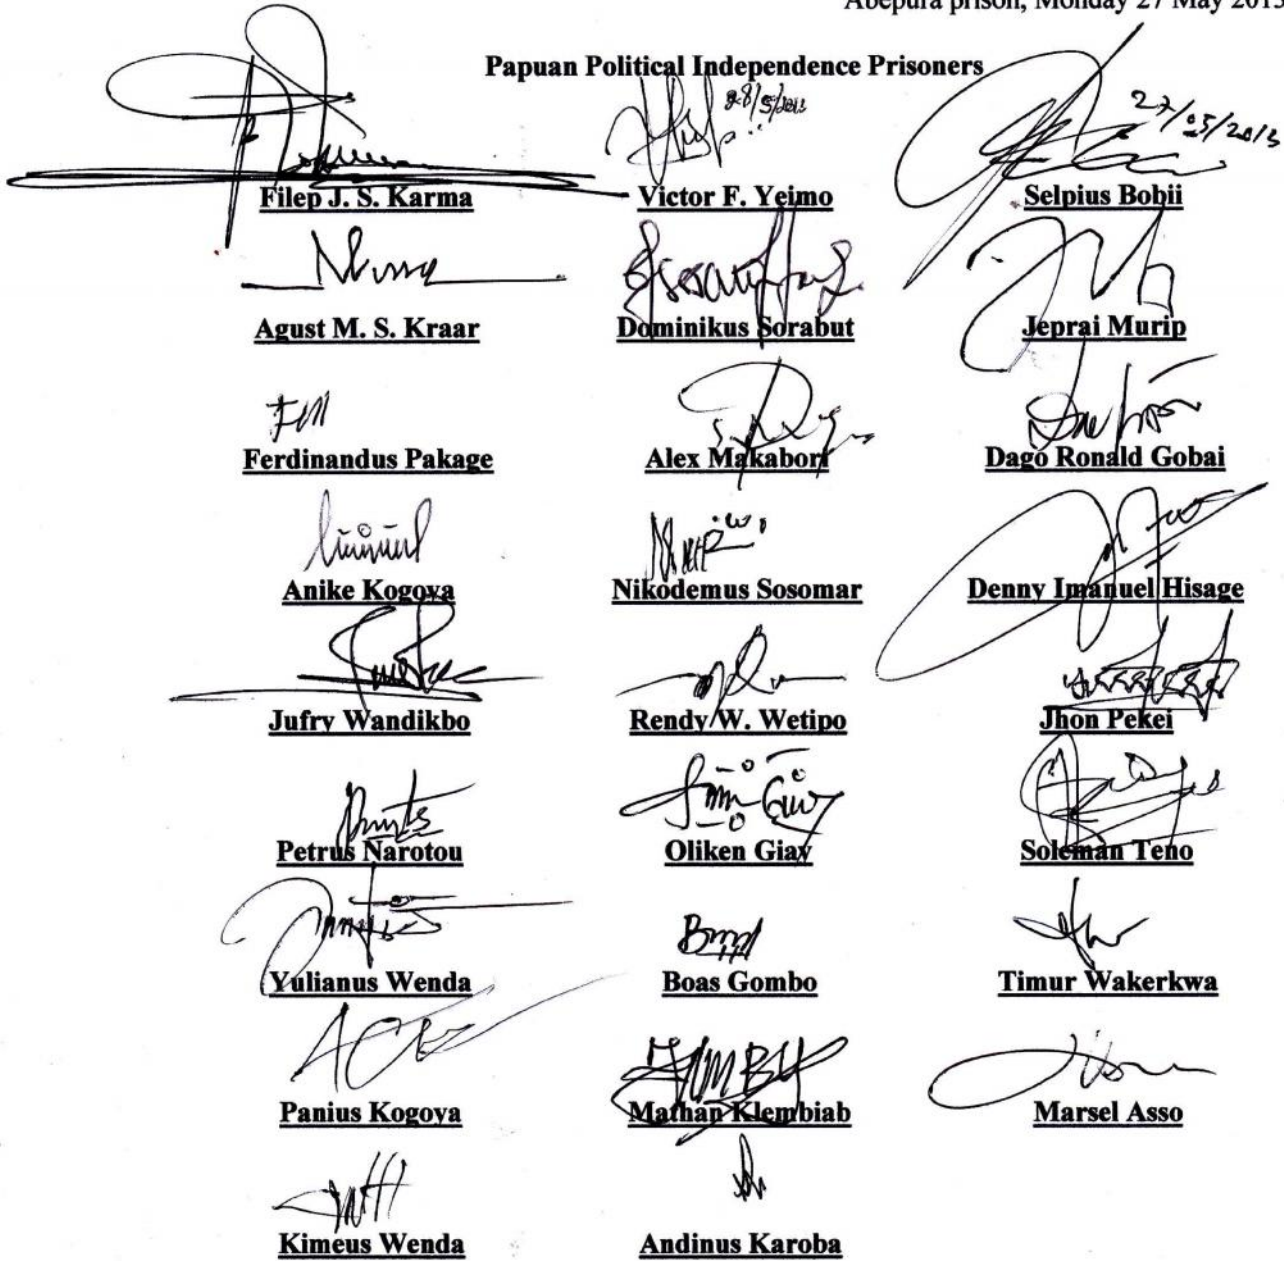 Abepura prison, Monday 27 May 2013
Papuan Political Independence Prisoners
28/5/2013
27/05/2013
Filep J. S. Karma Victor F. Yeimo Selpius Bobii
Agust M. S. Kraar Dominikus Sorabut Jeprai Murip
Ferdinandus Pakage Alex Makabori Dago Ronald Gobai
Anike Kogoya Nikodemus Sosomar Denny Imanuel Hisage
Jufry Wandikbo Rendy W. Wetipo Jhon Pekei
Petrus Narotou Oliken Giay Soleman Teno
Yulianus Wenda Boas Gombo Timur Wakerkwa
Panius Kogoya Mathan Klembiab Marsel Asso
Kimeus Wenda Andinus Karoba